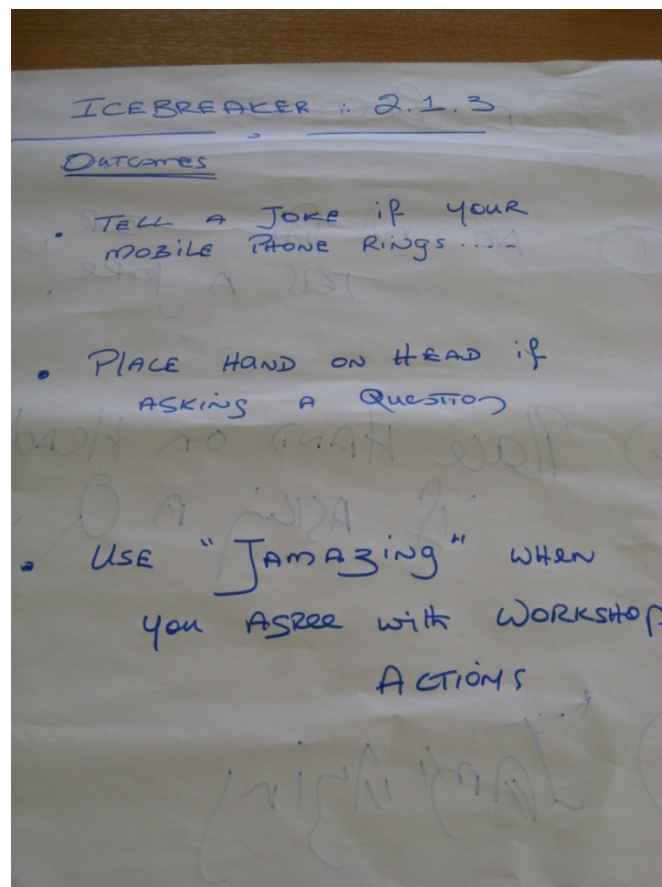 ICEBREAKER : 2.1.3
Outcomes
• TELL A JOKE if YOUR
MOBILE PHONE RINGS....
• PLACE HAND ON HEAD if
ASKING A QUESTION
• USE "JAMAZING" WHEN
you AGREE with WORKSHOP
ACTIONS